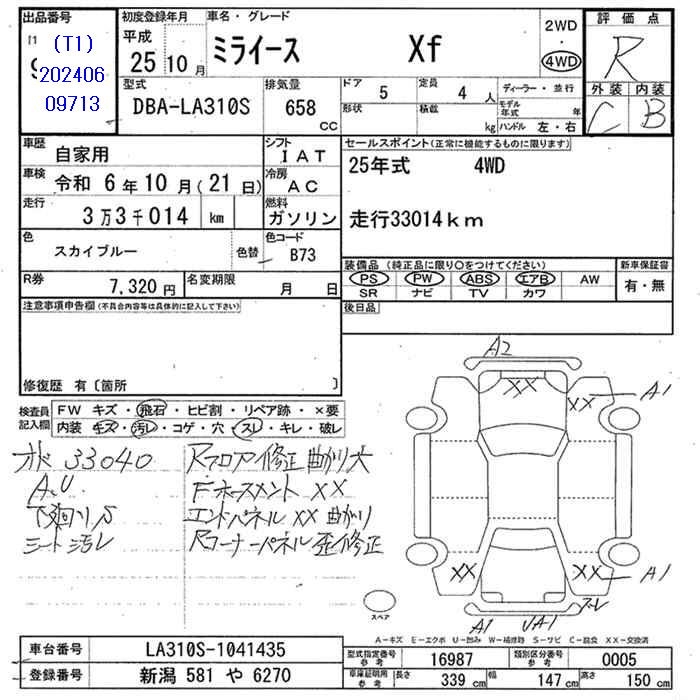 出品番号
(T1)
202406
09713
初度登録年月
平成
25 10 月
車名・グレード
ミライース Xf
2WD
4WD
評価点
R
外装 内装
C B
型式
DBA-LA310S
排気量
658 cc
ドア
5
定員
4 人
形状
積載
kg
ディーラー・並行
モデル年式 年
ハンドル 左・右
車歴
自家用
シフト
IAT
車検
令和 6年10月(21日)
冷房
AC
走行
3万3千014 km
燃料
ガソリン
色
スカイブルー
色替
色コード
B73
R券
7,320円
名変期限
月 日
セールスポイント(正常に機能するものに限ります)
25年式 4WD
走行33014km
装備品 (純正品に限り○をつけてください)
PS PW ABS エアB AW
SR ナビ TV カワ
新車保証書
有・無
後日品
注意事項申告欄(不具合内容等は具体的に記入して下さい)
修復歴 有〔箇所 〕
検査員記入欄
FW キズ・飛石・ヒビ割・リペア跡・×要
内装 キズ・汚レ・コゲ・穴・スレ・キレ・破レ
オド 33040
A.U.
下廻りS
シート汚レ
Rフロアー修正 曲がり大
Fホースメント XX
エンドパネル XX 曲がり
Rコーナーパネル 歪修正
A2
XX
XX
A1
XX
XX
A1
スレ
A1
UA1
スペア
A-キズ E-エクボ U-凹み W-補修跡 S-サビ C-腐食 XX-交換済
車台番号
LA310S-1041435
登録番号
新潟 581 や 6270
型式指定番号
参考
16987
類別区分番号
参考
0005
車庫証明用
参考
長さ
339 cm
幅
147 cm
高さ
150 cm